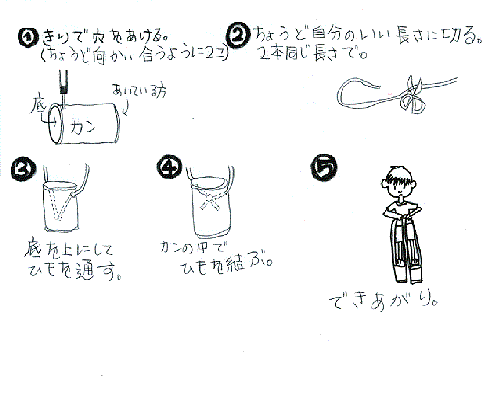 ① きりで穴をあける。
(ちょうど向かい合うように2コ)
底
カン
あいている方
② ちょうど自分のいい長さに切る。
2本同じ長さで。
③
底を上にして
ひもを通す。
④
カンの中で
ひもを結ぶ。
⑤
できあがり。